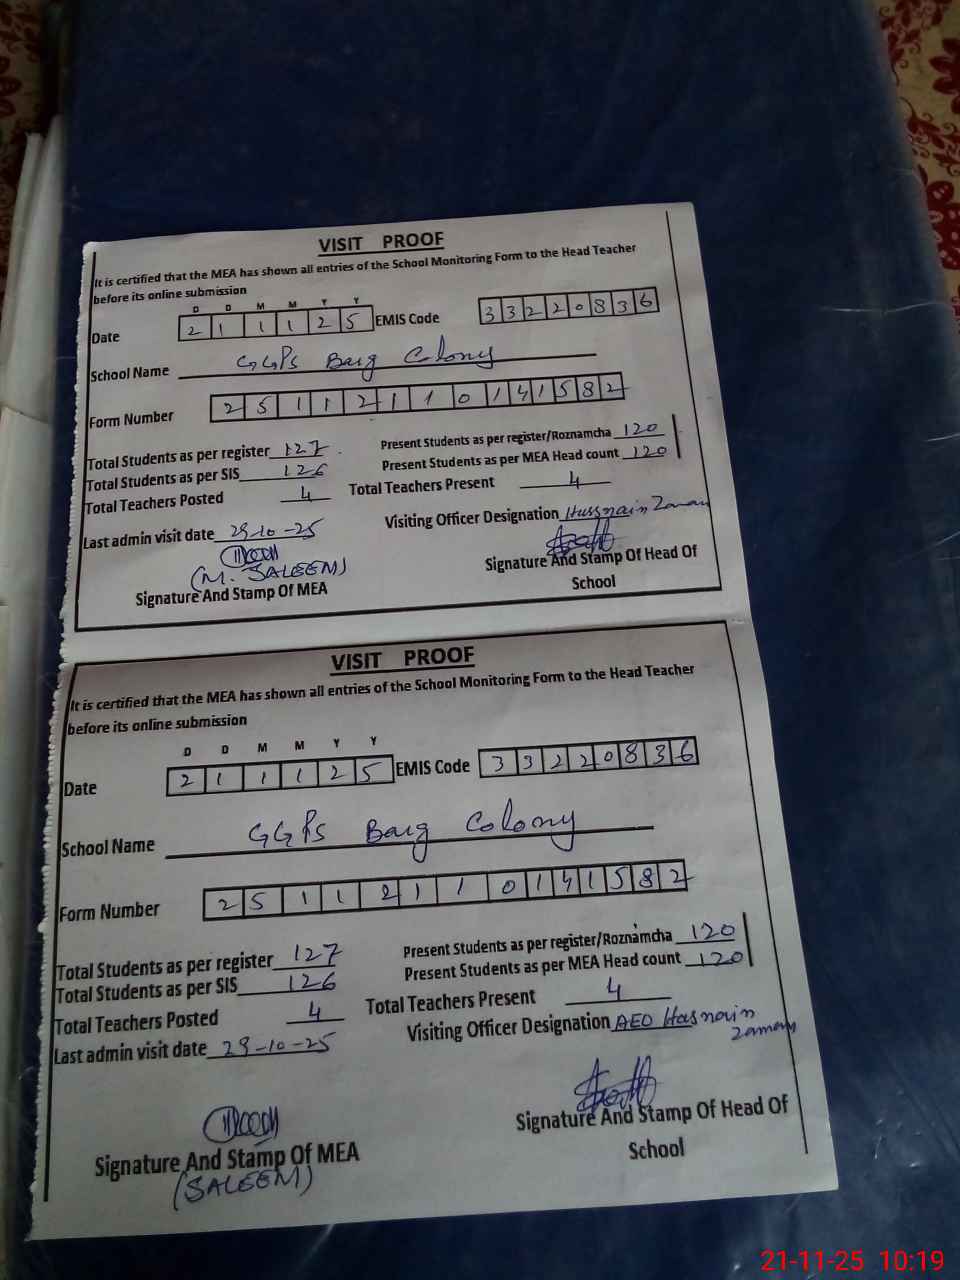 VISIT PROOF
It is certified that the MEA has shown all entries of the School Monitoring Form to the Head Teacher
before its online submission
D D M M Y Y
Date 2 1 1 1 2 5 EMIS Code 3 3 2 2 0 8 3 6
School Name GGPS Baig Colony
Form Number 2 5 1 1 2 1 1 0 1 4 1 5 8 2
Total Students as per register 127 Present Students as per register/Roznamcha 120
Total Students as per SIS 126 Present Students as per MEA Head count 120
Total Teachers Posted 4 Total Teachers Present 4
Last admin visit date 29-10-25 Visiting Officer Designation Hussnain Zaman
(M. SALEEM)
Signature And Stamp Of MEA Signature And Stamp Of Head Of
School
VISIT PROOF
It is certified that the MEA has shown all entries of the School Monitoring Form to the Head Teacher
before its online submission
D D M M Y Y
Date 2 1 1 1 2 5 EMIS Code 3 3 2 2 0 8 3 6
School Name GGPS Baig Colony
Form Number 2 5 1 1 2 1 1 0 1 4 1 5 8 2
Total Students as per register 127 Present Students as per register/Roznamcha 120
Total Students as per SIS 126 Present Students as per MEA Head count 120
Total Teachers Posted 4 Total Teachers Present 4
Last admin visit date 29-10-25 Visiting Officer Designation AEO Hasnain
Zaman
Signature And Stamp Of MEA Signature And Stamp Of Head Of
(SALEEM) School
21-11-25 10:19